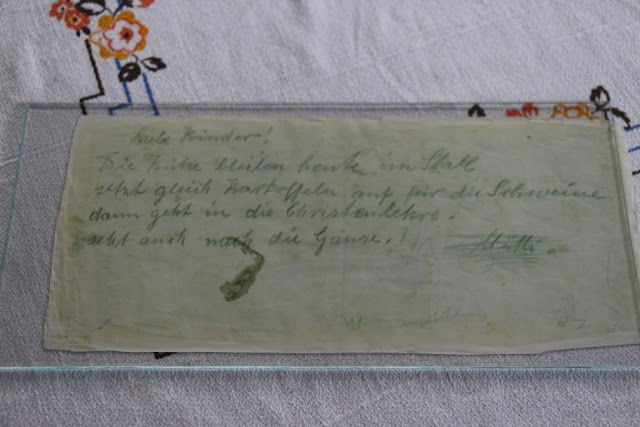 Liebe Kinder!
Die Kühe bleiben heute im Stall
setzt gleich Kartoffeln auf für die Schweine
dann geht in die Christenlehre.
seht auch nach die Gänse.!
Mutti.